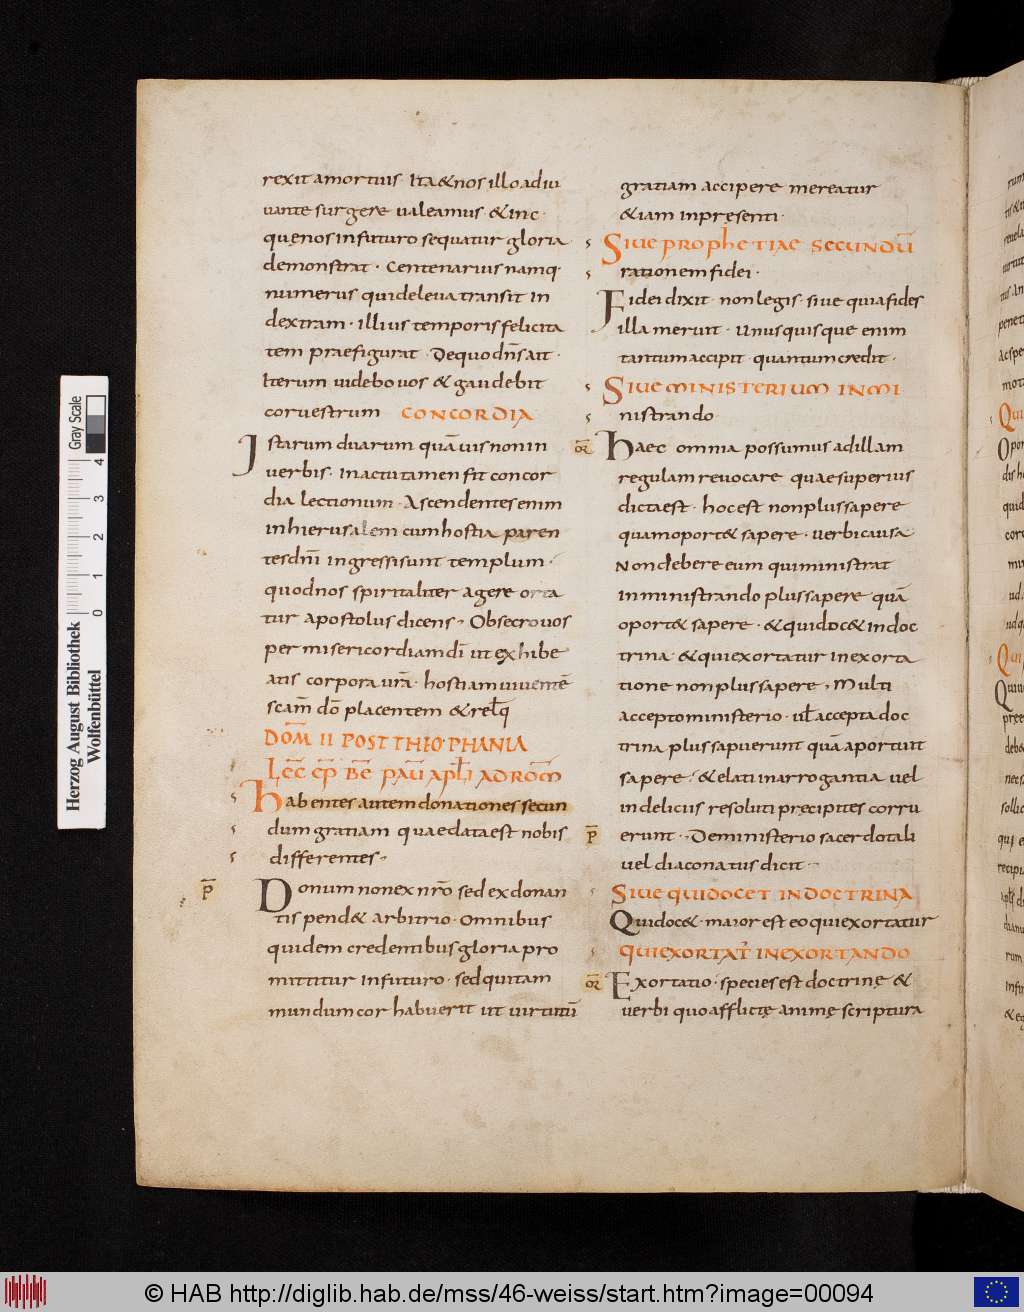 rexit amortuis · Ita & nos illo adiu
uante surgere ualeamus · & inc·
quę nos infuturo sequatur gloria
demonstrat · Centenarius namq·
numerus qui deleua transit in
dextram · illius temporis felicita
tem praefigurat · De quo dn̄s ait ·
Iterum uidebo uos & gaudebit
cor uestrum CONCORDIA
Istarum duarum quā uis non in
uerbis · In actu tamen fit concor
dia lectionum · Ascendentes enim
in hierusalem cum hostia paren
tes dn̄i ingressi sunt templum ·
quod nos spiritaliter agere orta
tur apostolus dicens · Obsecro uos
per misericordiam dī ut exhibe
atis corpora ur̄a · hostiam uiuentē
scam̄ dō placentem & rel̄q
DOM̄ II POST THIOPHANIA
LEC̄ EP̄ BĒ PAŪ APL̄I AD ROM̄
Habentes autem donationes secun
dum gratiam quae data est nobis
differentes ·
p̄ Donum non ex nr̄o sed ex donan
tis pend& arbitrio · Omnibus
quidem credentibus gloria pro
mittitur Infuturo · sed qui tam
mundum cor habuerit ut uirtutū
gratiam accipere mereatur
& iam inpresenti ·
Siue prophetiae secundū
rationem fidei ·
Fidei dixit · non legis · siue quia fides
illa meruit · unusquisque enim
tantum accipit quantum credit ·
Siue MINISTERIUM IN MI
nistrando
or̄ Haec omnia possumus ad illam
regulam reuocare quae superius
dicta est · hoc est non plus sapere
quam oport& sapere · uerbi causa
Non debere eum qui ministrat
in ministrando plus sapere quā
oport& sapere · & qui doc& in doc
trina · & qui exortatur in exorta
tione non plus sapere · Multi
accepto ministerio · ul̄ accepta doc
trina plus sapuerunt quā aportuit
sapere · & elati in arrogantia uel
in deliciis resoluti precipites corru
p̄ erunt · De ministerio sacerdotali
uel diaconatus dicit ·
SIUE QUI DOCET IN DOCTRINA
Qui doc& · maior est eo qui exortatur
QUI EXORTAT̄ IN EXORTANDO
or̄ Exortatio · species est doctrinę &
uerbi quo afflictę animę scriptura
Gray Scale
4 3 2 1 0
Herzog August Bibliothek
Wolfenbüttel
© HAB http://diglib.hab.de/mss/46-weiss/start.htm?image=00094